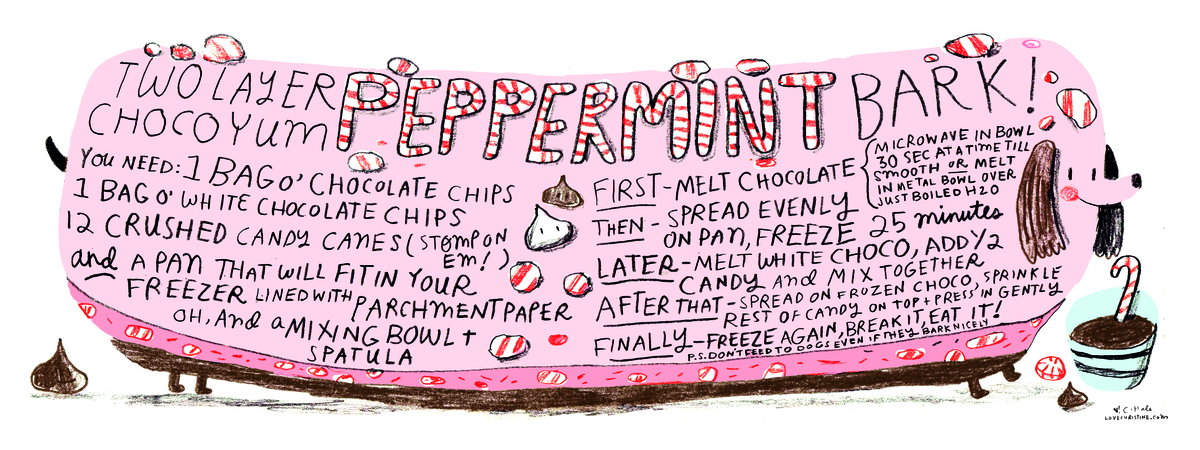 TWO LAYER
CHOCOYUM
PEPPERMINT
BARK!
YOU NEED: 1 BAG O' CHOCOLATE CHIPS
1 BAG O' WHITE CHOCOLATE CHIPS
12 CRUSHED CANDY CANES (STOMP ON EM!)
and A PAN THAT WILL FIT IN YOUR
FREEZER LINED WITH PARCHMENT PAPER
OH, and a MIXING BOWL +
SPATULA
FIRST - MELT CHOCOLATE
MICROWAVE IN BOWL
30 SEC AT A TIME TILL
SMOOTH OR MELT
IN METAL BOWL OVER
JUST BOILED H2O
THEN - SPREAD EVENLY
ON PAN, FREEZE 25 minutes
LATER - MELT WHITE CHOCO, ADD 1/2
CANDY and MIX TOGETHER
AFTER THAT - SPREAD ON FROZEN CHOCO, SPRINKLE
REST OF CANDY ON TOP + PRESS IN GENTLY
FINALLY - FREEZE AGAIN, BREAK IT, EAT IT!
P.S. DON'T FEED TO DOGS EVEN IF THEY BARK NICELY
LOVECHRISTINE.COM